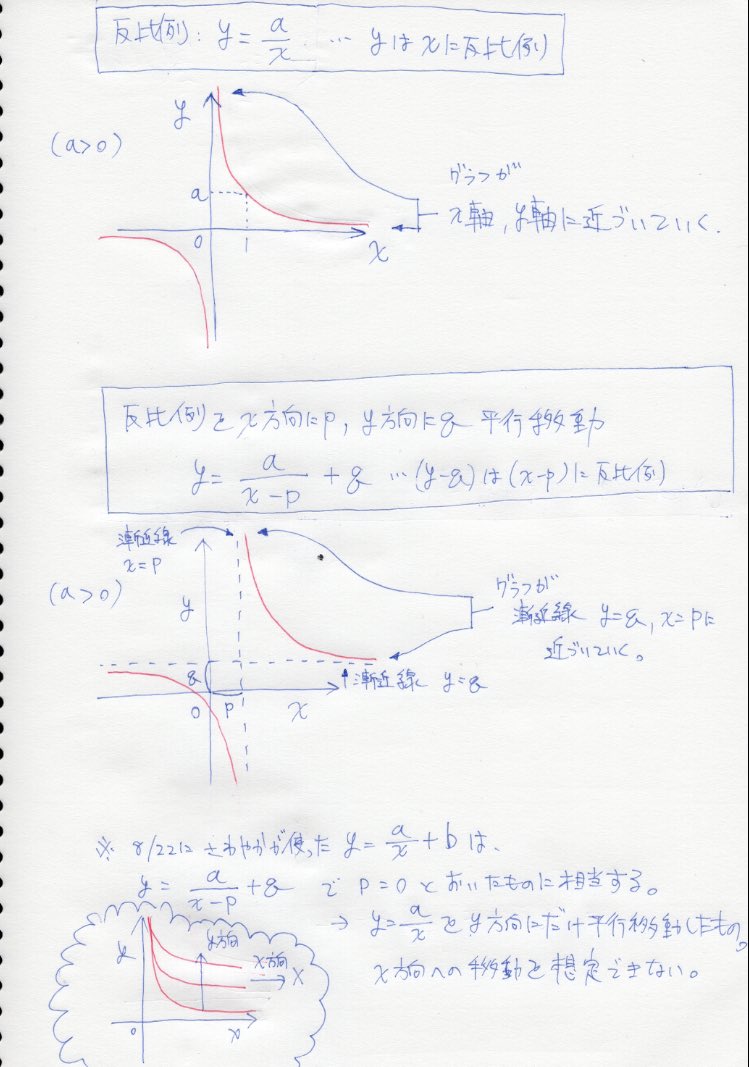 反比例: y = a/x … yはxに反比例
(a>0)
y
a
0
1
x
グラフが
x軸, y軸に近づいていく.
反比例をx方向にp, y方向にq 平行移動
y = a/(x-p) + q … (y-q)は(x-p)に反比例
漸近線
x=p
(a>0)
y
q
0
p
x
グラフが
漸近線 y=q, x=pに
近づいていく。
漸近線 y=q
※ 8/22に さわやかが使った y = a/x + b は、
y = a/(x-p) + q で p=0 とおいたものに相当する。
→ y = a/x をy方向にだけ平行移動したもの。
x方向への移動を想定できない。
y
y方向
x方向
X
0
x